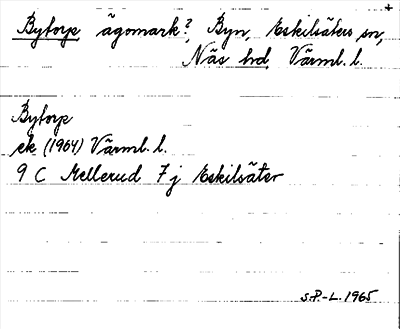 +
Bytorp ägomark?, Byn, Eskilsäters sn,
Näs hd, Värml. l.
Bytorp
ek (1964) Värml. l.
9 C Mellerud 7 j Eskilsäter
S.P.-L. 1965